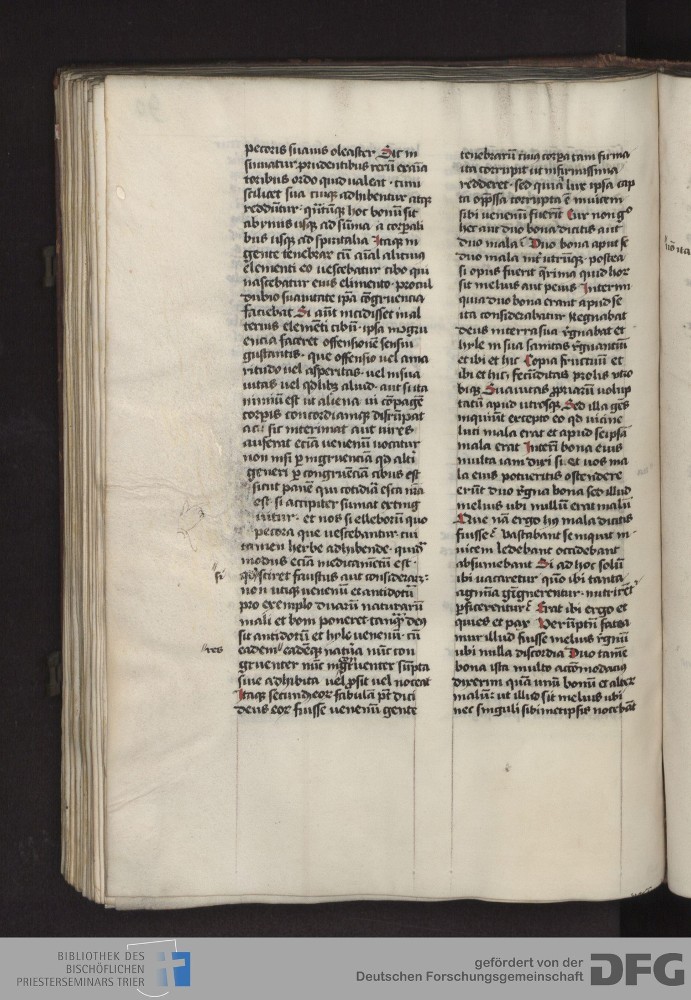 pecoris suauis oleaster Sic in
sinuatur prudentibus rerū exaīa
toribus ordo quid ualeat · cum
scilicet sua cuiq̄ adhibentur atq̄
reddūtur · quātūq̄ hoc bonū sit
ab ymis usq̄ ad sūma · a corpali
bus usq̄ ad spūitalia Itaq̄ in
gente tenebrar cū aīal alicuiꝰ
elementi eo uescebatur cibo qui
nascebatur eius elimento · procul
dubio suauitatē ipā cōgruencia
faciebat Si aūt incidisset in al
terius elemēti cibū · ipsa īcōgru
encia faceret offensionē sensui
gustantis · que offensio uel ama
ritudo uel asperitas · uel insua
uitas uel qdlibꝫ aliud · aut si ita
nimiū est ut aliena ui cōpagē
corpis concordiamq̄ disrūpat
ac sic interimat aut uires
auferat eciā uenenū uocatur
non nisi ꝑ ingruenciā qd alti
generi ꝑ congruēciā cibus est
sicut panē qui cotidiā esca nrā
est · si accipiter sumat exting
uitur · et nos si elleborū quo
pecora que uescebantur · cui
tamen herbe adhibende · quidā
modus eciā medicamētū est ·
si
qd sciret faustus aut considerarꝫ :
non utiq̄ uenenū et antidotū
pro exemplo duarū naturarū
mali et boni poneret tanq̄ deꝰ
sit antidotū et hyle uenenū · cū
res
eadem eadēq̄ natura nūc con
gruenter nūc īgruenter sūpta
siue adhibita uel ꝓsit uel noceat
Itaq̄ secundū eor fabulā pt̄ dici
deus eor fuisse uenenū gente
tenebrarū cuiꝰ corpa tam firma
ita corrupit ut infirmissima
redderet · sed quia lux ipsa cap
ta oppssa corrupta ē inuicem
sibi uenenū fuerūt Cur non gͦ
hec aut duo bona dicitis aut
duo mala Duo bona apud se
duo mala int̄ utrūq̄ · postea
si opus fuerit q̄rima quid hor
sit melius aut peius Interim
quia duo bona erant apud se
ita considerabatur Regnabat
deus in terra sua rignabat et
hyle in sua sanitas rignantiū
et ibi et hic Copia fructuū et
ibi et hic · fecūditas prolis utro
biq̄ Suauitas ꝓpriarū uolup
tatū apud utrosq̄ Sed illa gēs
inquiūt excepto eo qd uicine
luci mala erat et apud seipsā
mala erat Interī bona eius
multa iam dixi si et uos ma
la eius potueritis ostendere
erūt duo rigna bona sed illud
melius ubi nullū erat malū
Que nā ergo hꝰ mala dicitis
fuisse Vastabant se inquit in
uicem ledebant occidebant
absumebant Si ad hoc solū
ibi uacaretur quō ibi tanta
agmīa gignerentur · nutrirēt
ꝓficerentur Erat ibi ergo et
quies et pax Verūptn̄ fatea
mur illud fuisse melius rignū
ubi nulla discordia Duo tamē
bona ista multo accōmodaciꝰ
dixerim quā unū bonū et alter
malū : ut illud sit melius ubi
nec singuli sibimetipsis nocebāt
BIBLIOTHEK DES
BISCHÖFLICHEN
PRIESTERSEMINARS TRIER
gefördert von der
Deutschen Forschungsgemeinschaft
DFG